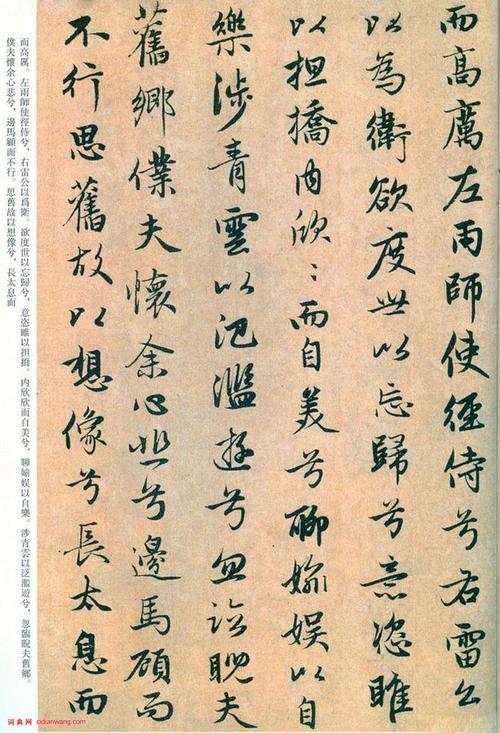 而高厲左雨師使徑侍兮右雷公
以為衛欲度世以忘歸兮意恣睢
以担橋內欣〻而自美兮聊媮娛以自
樂涉青雲以汜濫遊兮忽臨睨夫
舊鄉僕夫懷余心悲兮邊馬顧而
不行思舊故以想像兮長太息而
而高厲。左雨師使徑侍兮，右雷公以爲衛。欲度世以忘歸兮，意恣睢以担橋。内欣欣而自美兮，聊媮娱以自樂。涉青雲以泛濫遊兮，忽臨睨夫舊鄉。
僕夫懷余心悲兮，邊馬顧而不行。思舊故以想像兮，長太息而
词典网 cidianwang.com